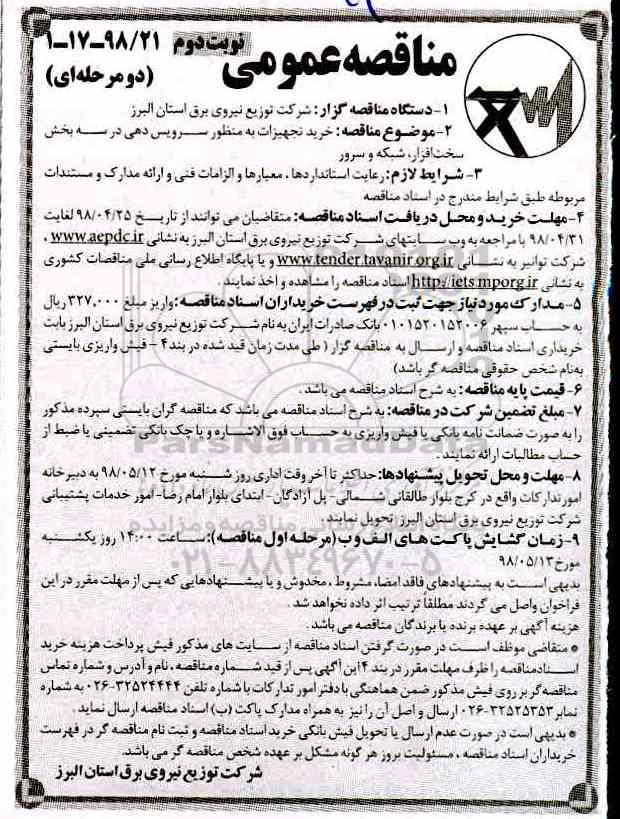 مناقصه عمومی نوبت دوم ۹۸/۲۱-۱۷-۱
(دو مرحله‌ای)
۱- دستگاه مناقصه گزار: شرکت توزیع نیروی برق استان البرز
۲- موضوع مناقصه: خرید تجهیزات به منظور سرویس دهی در سه بخش
سخت‌افزار، شبکه و سرور
۳- شرایط لازم: رعایت استانداردها، معیارها و الزامات فنی و ارائه مدارک و مستندات
مربوطه طبق شرایط مندرج در اسناد مناقصه
۴- مهلت خرید و محل دریافت اسناد مناقصه: متقاضیان می توانند از تاریخ ۹۸/۰۴/۲۵ لغایت
۹۸/۰۴/۳۱ با مراجعه به وب سایتهای شرکت توزیع نیروی برق استان البرز به نشانی www.aepdc.ir ،
شرکت توانیر به نشانی www.tender.tavanir.org.ir و یا پایگاه اطلاع رسانی ملی مناقصات کشوری
به نشانی http://iets.mporg.ir اسناد مناقصه را مشاهده و اخذ نمایند.
۵- مدارک مورد نیاز جهت ثبت در فهرست خریداران اسناد مناقصه: واریز مبلغ ۳۲۷,۰۰۰ ریال
به حساب سپهر ۰۱۰۱۵۲۰۱۵۲۰۰۶ بانک صادرات ایران به نام شرکت توزیع نیروی برق استان البرز بابت
خریداری اسناد مناقصه و ارسال به مناقصه گزار (طی مدت زمان قید شده در بند ۴ - فیش واریزی بایستی
به‌نام شخص حقوقی مناقصه گر باشد)
۶- قیمت پایه مناقصه: به شرح اسناد مناقصه می باشد.
۷- مبلغ تضمین شرکت در مناقصه: به شرح اسناد مناقصه می باشد که مناقصه گران بایستی سپرده مذکور
را به صورت ضمانت نامه بانکی یا فیش واریزی به حساب فوق الاشاره و یا چک بانکی تضمینی یا ضبط از
حساب مطالبات ارائه نمایند.
ParsNamadData
۸- مهلت و محل تحویل پیشنهادها: حداکثر تا آخر وقت اداری روز شنبه مورخ ۹۸/۰۵/۱۲ به دبیرخانه
امور تدارکات واقع در کرج بلوار طالقانی شمالی- پل آزادگان- ابتدای بلوار امام رضا- امور خدمات پشتیبانی
شرکت توزیع نیروی برق استان البرز تحویل نمایند.
۹- زمان گشایش پاکت های الف و ب (مرحله اول مناقصه): ساعت ۱۴:۰۰ روز یکشنبه
مورخ ۹۸/۰۵/۱۳
۰۲۱-۸۸۳۴۹۶۷۰-۵
بدیهی است به پیشنهادهای فاقد امضا، مشروط، مخدوش و یا پیشنهادهایی که پس از مهلت مقرر در این
فراخوان واصل می گردند مطلقاً ترتیب اثر داده نخواهد شد.
هزینه آگهی بر عهده برنده یا برندگان مناقصه می باشد.
* متقاضی موظف است در صورت گرفتن اسناد مناقصه از سایت های مذکور فیش پرداخت هزینه خرید
اسناد مناقصه را ظرف مهلت مقرر در بند ۴ این آگهی پس از قید شماره مناقصه، نام و آدرس و شماره تماس
مناقصه‌گر بر روی فیش مذکور ضمن هماهنگی با دفتر امور تدارکات با شماره تلفن ۳۲۵۲۴۴۴۴-۰۲۶ به شماره
نمابر ۳۲۵۲۵۳۵۳-۰۲۶ ارسال و اصل آن را نیز به همراه مدارک پاکت (ب) اسناد مناقصه ارسال نماید.
* بدیهی است در صورت عدم ارسال یا تحویل فیش بانکی خرید اسناد مناقصه و ثبت نام مناقصه گر در فهرست
خریداران اسناد مناقصه، مسئولیت بروز هر گونه مشکل بر عهده شخص مناقصه گر می باشد.
شرکت توزیع نیروی برق استان البرز